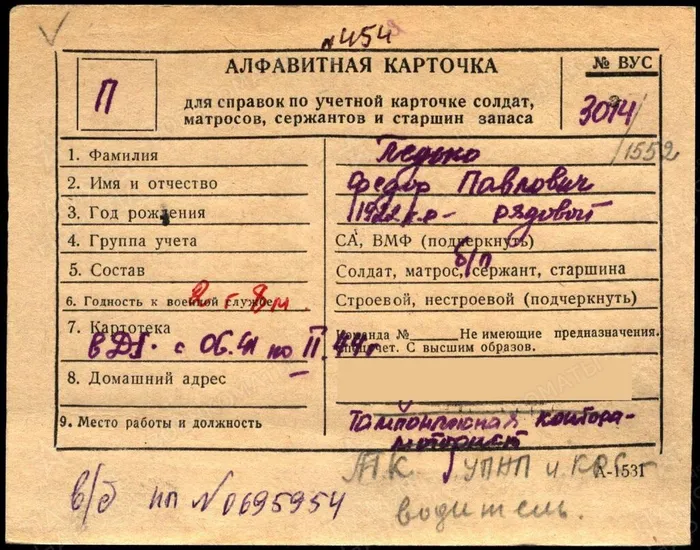 №454
АЛФАВИТНАЯ КАРТОЧКА
№ ВУС
П
для справок по учетной карточке солдат,
матросов, сержантов и старшин запаса
3014/1552
1. Фамилия
2. Имя и отчество Федор Павлович
3. Год рождения 1922 г.р- рядовой
4. Группа учета СА, ВМФ (подчеркнуть)
б/п
5. Состав Солдат, матрос, сержант, старшина
6. Годность к военной службе Строевой, нестроевой (подчеркнуть)
7. Картотека Команда № Не имеющие предназначения.
Спецучет. С высшим образов.
в ДА. с 06.41 по II.44г
8. Домашний адрес
9. Место работы и должность Тампонажная контора-
моторист
ТК УПНП и КРС
А-1531
в/б НП №0695954
водитель.